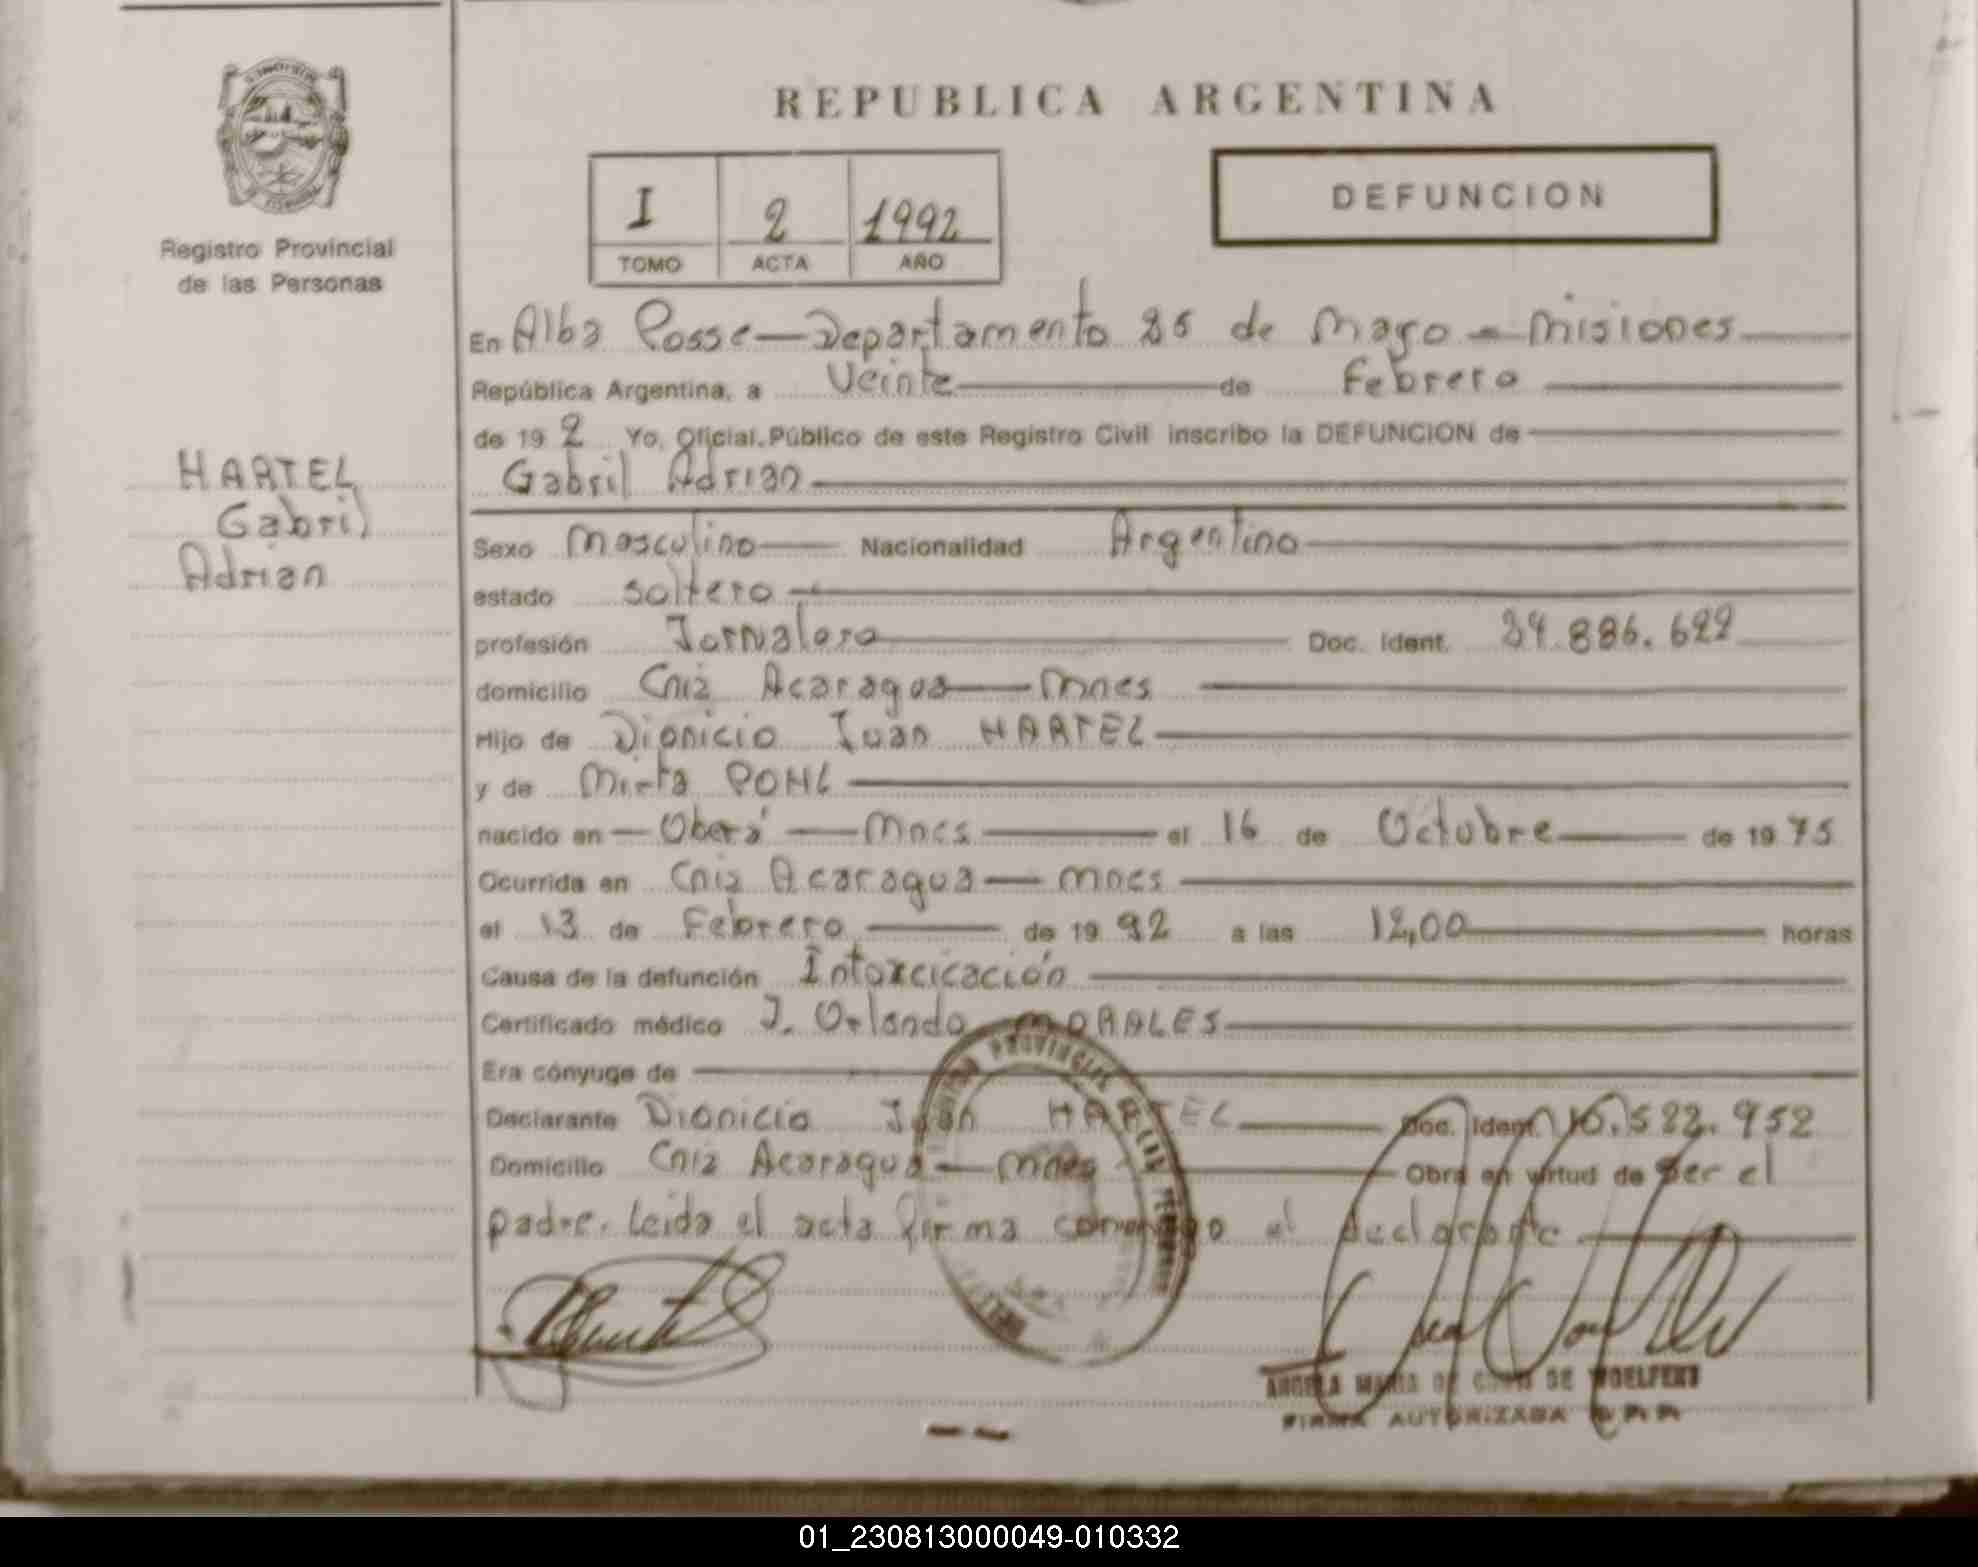 REPUBLICA ARGENTINA
Registro Provincial
de las Personas
I 2 1992
TOMO ACTA AÑO
DEFUNCION
HARTEL
Gabril
Adrian
En Alba Posse — Departamento 25 de Mayo - Misiones
República Argentina, a Veinte de Febrero
de 19 2 Yo, Oficial Público de este Registro Civil inscribo la DEFUNCION de
Gabril Adrian
Sexo Masculino Nacionalidad Argentino
estado soltero
profesión Jornalero Doc. Ident. 34.886.622
domicilio Cnia Acaragua — Mnes
Hijo de Dionicio Juan HARTEL
y de Mirta POHL
nacido en — Oberá — Mnes el 16 de Octubre de 19 75
Ocurrida en Cnia Acaragua — Mnes
el 13 de Febrero de 19 92 a las 12,00 horas
Causa de la defunción Intoxcicación
Certificado médico J. Orlando MORALES
Era cónyuge de
Declarante Dionicio Juan HARTEL Doc. Ident. 10.522.952
Domicilio Cnia Acaragua — Mnes Obra en virtud de ser el
padre. Leida el acta firma conmigo el declarante
ANGELA MARIA DE DE WOELFERT
FIRMA AUTORIZADA
01_230813000049-010332